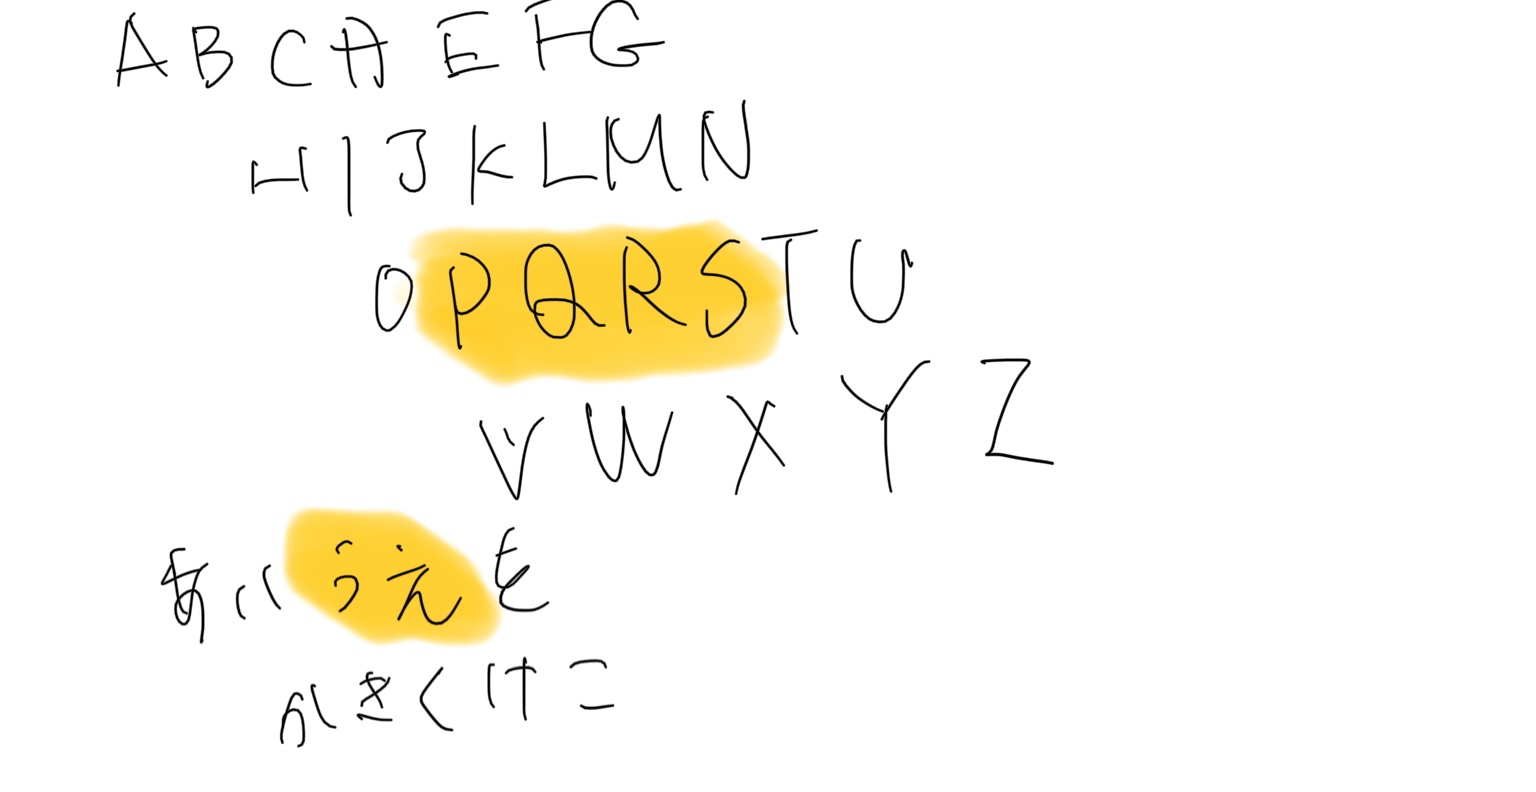 ABCDEFG
HIJKLMN
OPQRSTU
VWXYZ
あいうえを
かきくけこ